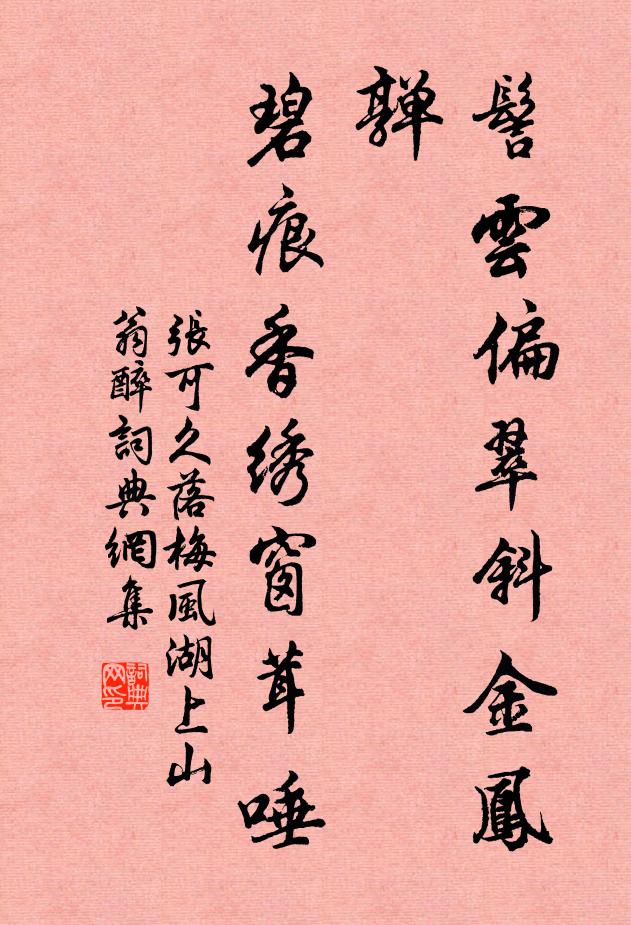 髻雲偏翠斜金鳳
亸
碧痕香綉窗茸唾
張可久落梅風湖上山
翁醉詞典網集
詞典
网印